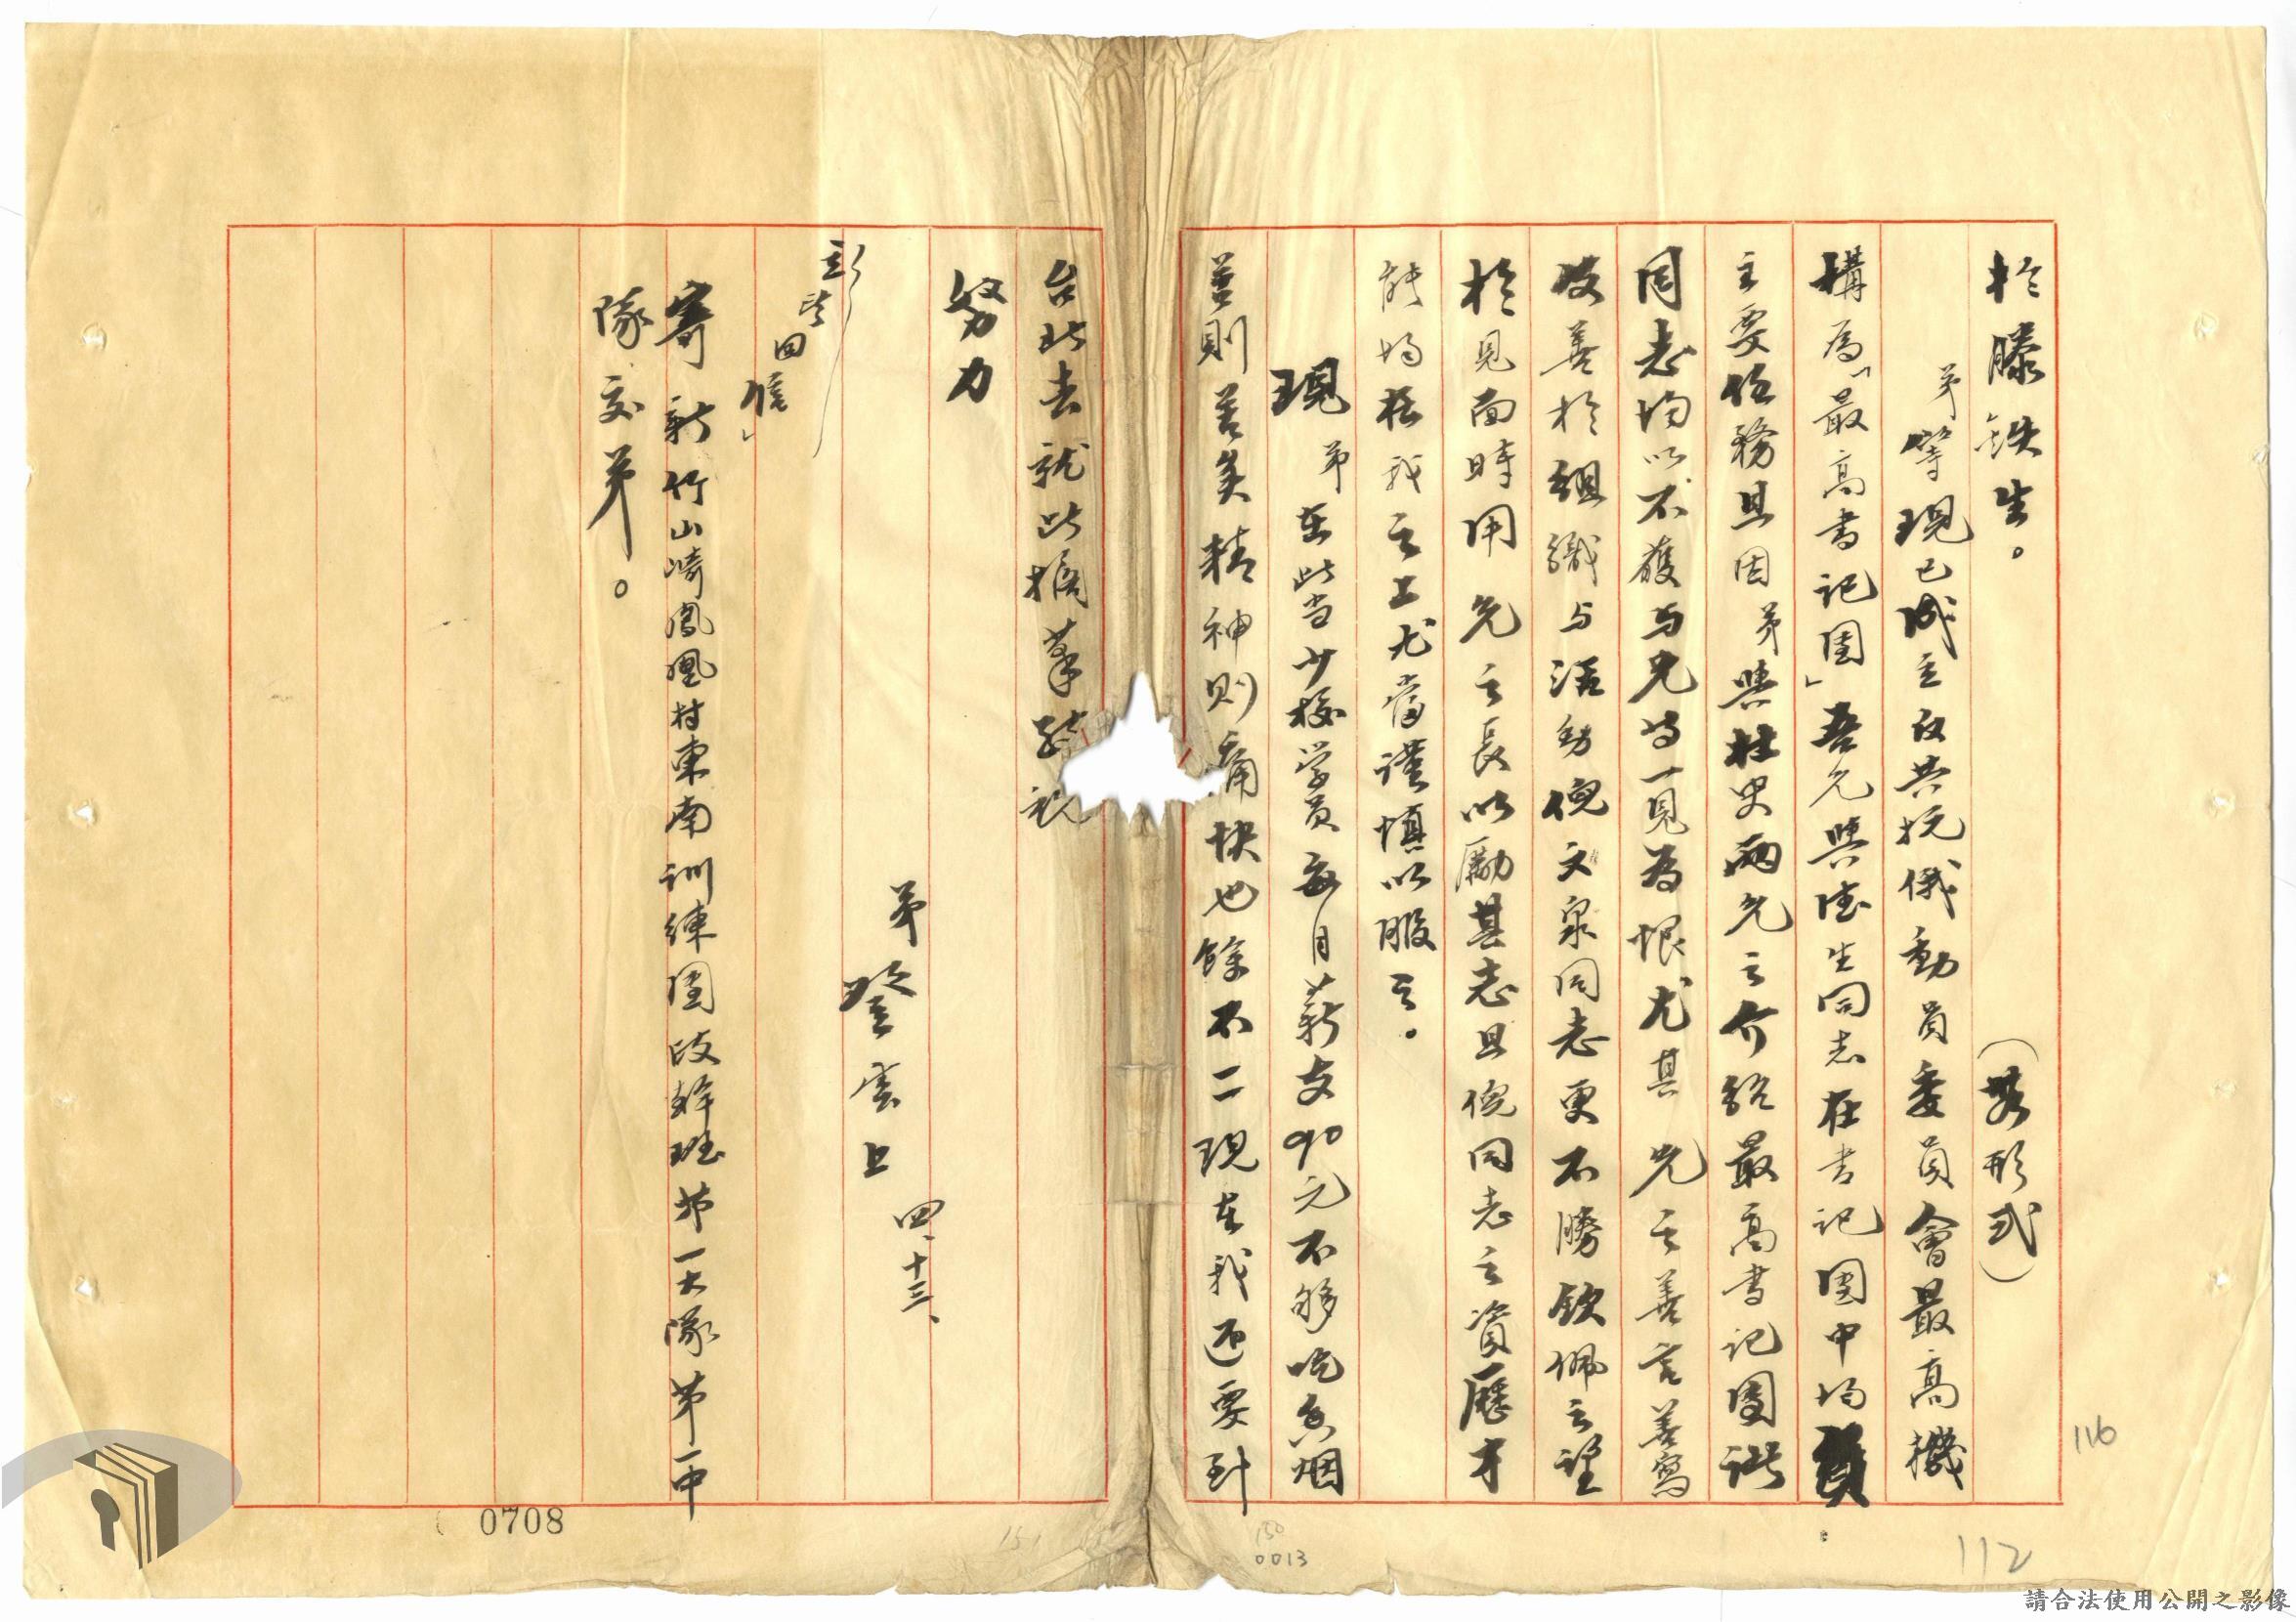 於滕鉄生。（無形式）
弟等現已成立反共抗俄動員委員會最高機
構為「最高書記團」吾兄與德生同志在書記團中均負
主要任務且因弟與杜史兩兄之介紹最高書記團諸
同志均以不獲与兄时一見為恨尤其 兄之善言善寫
及善於組織与活動倪文泉同志更不勝欽佩之望
於見面時用 兄之長以勵其志且倪同志之資歷才
能均在我之上尤當謹慎以服之。
現弟在此当少校学員每月薪支90元不够吃香烟
苦則苦矣精神則痛快也餘不二現在我迺要到
台北去就此擱筆敬祝
努力
弟 登雲上 四、十三、
立望回信」
寄新竹山崎鳳凰村東南訓練團政幹班第一大隊第一中
隊交弟。
0708
151
150
0013
116
112
請合法使用公開之影像